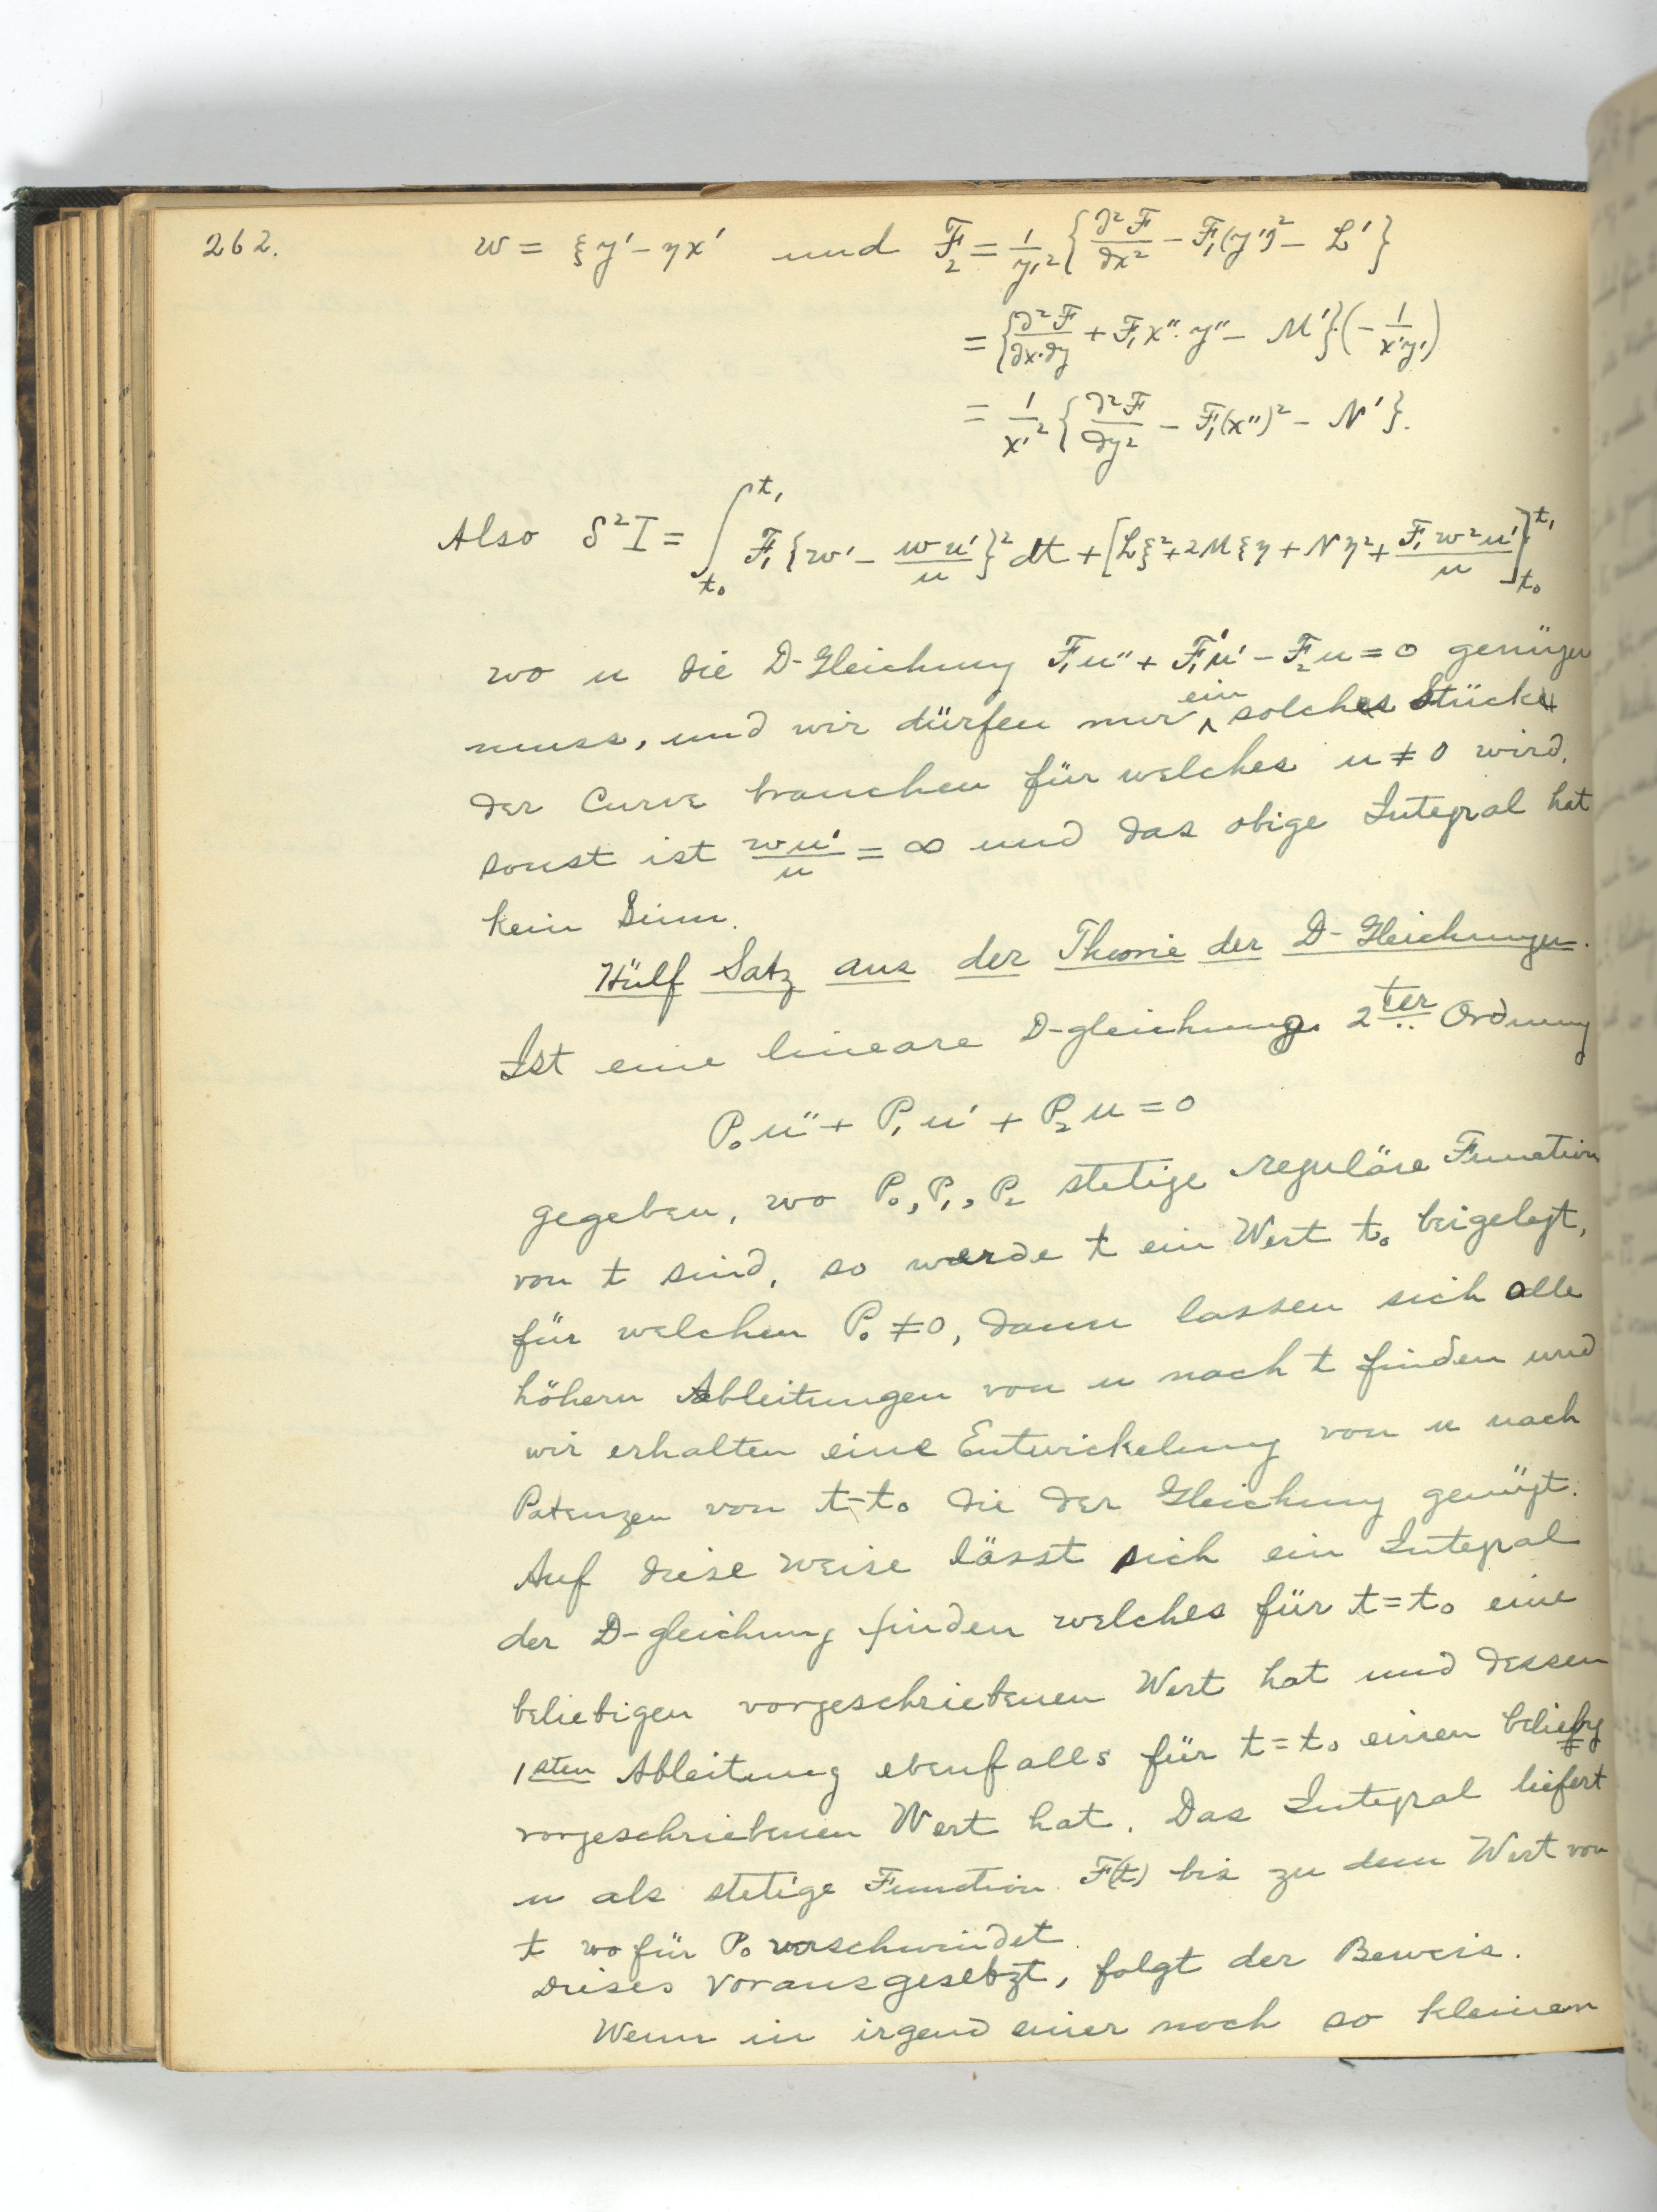 262. w = ξy′ − ηx′ und F₂ = 1/y′² { ∂²F/∂x² − F₁(y″)² − L′ }
= { ∂²F/∂x·∂y + F₁x″·y″ − M′ }·(− 1/x′y′)
= 1/x′² { ∂²F/∂y² − F₁(x″)² − N′ }.
Also δ²I = ∫_{t₀}^{t₁} F₁ { w′ − wu′/u }² dt + [ Lξ² + 2Mξη + Nη² + F₁w²u′/u ]_{t₀}^{t₁}
wo u die D-Gleichung F₁u″ + F₁′u′ − F₂u = 0 genügen
muss, und wir dürfen nur ein solches Stück
der Curve brauchen für welches u ≠ 0 wird,
sonst ist wu′/u = ∞ und das obige Integral hat
kein Sinn.
Hülf Satz aus der Theorie der D-Gleichungen.
Ist eine lineare D-gleichung 2ter Ordnung
P₀u″ + P₁u′ + P₂u = 0
gegeben, wo P₀, P₁, P₂ stetige reguläre Function
von t sind, so werde t ein Wert t₀ beigelegt,
für welchen P₀ ≠ 0, dann lassen sich alle
höhern Ableitungen von u nach t finden und
wir erhalten eine Entwickelung von u nach
Potenzen von t−t₀ die der Gleichung genügt.
Auf diese weise lässt sich ein Integral
der D-gleichung finden welches für t = t₀ eine
beliebigen vorgeschriebenen Wert hat und dessen
1sten Ableitung ebenfalls für t = t₀ einen beliebg
vorgeschriebenen Wert hat. Das Integral liefert
u als stetige Function F(t) bis zu dem Wert von
t wo für P₀ verschwindet.
Dieses vorausgesetzt, folgt der Beweis.
Wenn in irgend einer noch so kleinen